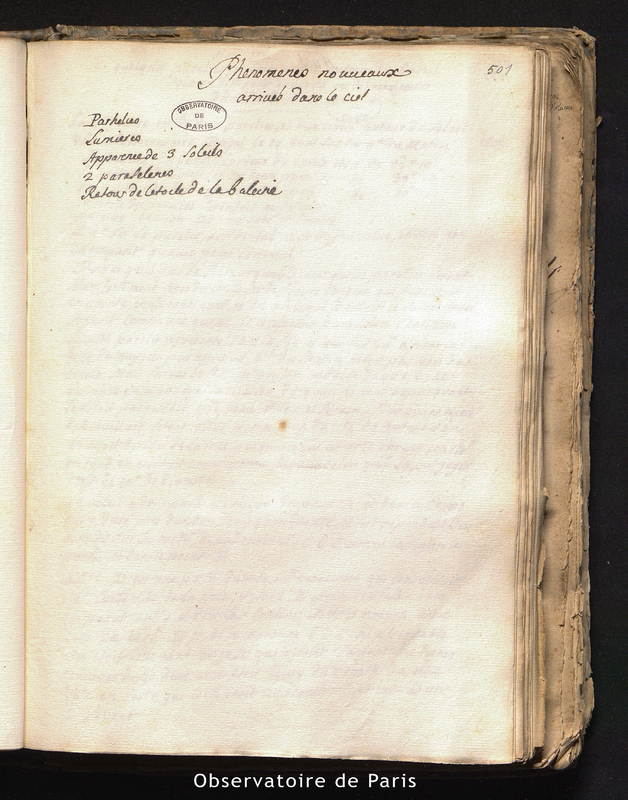 Phenomenes nouueaux
501
arriués dans le ciel
OBSERVATOIRE
DE
PARIS
Parhelies
Lumieres
Apparnce de 3 soleils
2 paraselenes
Retour de letoile de la baleine
Observatoire de Paris